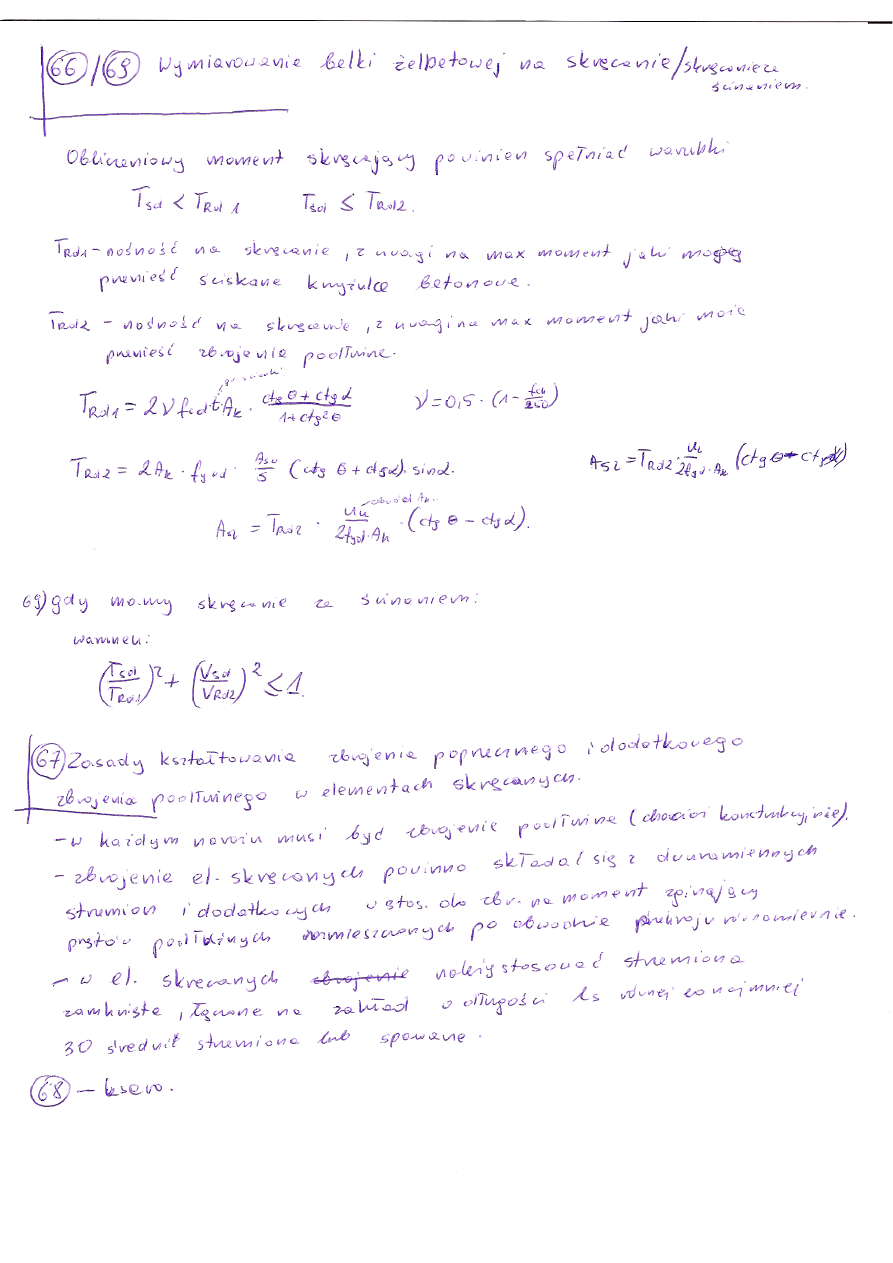 66/69 Wymiarowanie belki żelbetowej na skręcanie/skręcanie ze
ścinaniem.
Obliczeniowy moment skręcający powinien spełniać warunki
Tsd < TRd1 Tsd ≤ TRd2.
TRd1 – nośność na skręcanie, z uwagi na max moment jaki mogą
przenieść ściskane krzyżulce betonowe.
TRd2 – nośność na skręcanie, z uwagi na max moment jaki może
przenieść zbrojenie podłużne.
TRd1 = 2ν fcd·t·Ak · (ctg θ + ctg α)/(1+ctg²θ) ν = 0,5·(1 – fck/250)
TRd2 = 2Ak · fywd · Asw/s (ctg θ + ctg α)·sin α. Asl = TRd2 · uk/(2fyd·Ak) (ctg θ – ctg α)
obwód Ak.
Asl = TRd2 · uk/(2fyd·Ak) · (ctg θ – ctg α).
69) gdy mamy skręcanie ze ścinaniem:
warunek:
(Tsd/TRd1)² + (Vsd/VRd2)² ≤ 1.
67 Zasady kształtowania zbrojenia poprzecznego i dodatkowego
zbrojenia podłużnego w elementach skręcanych.
– w każdym narożu musi być zbrojenie podłużne (chociaż konstrukcyjnie).
– zbrojenie el. skręcanych powinno składać się z dwuramiennych
strzemion i dodatkowych w stos. do zbr. na moment zginający
prętów podłużnych rozmieszczonych po obwodzie przekroju równomiernie.
– w el. skręcanych zbrojenie należy stosować strzemiona
zamknięte, łączone na zakład o długości ls równej co najmniej
30 średnic strzemiona lub spawane.
68 – ksero.